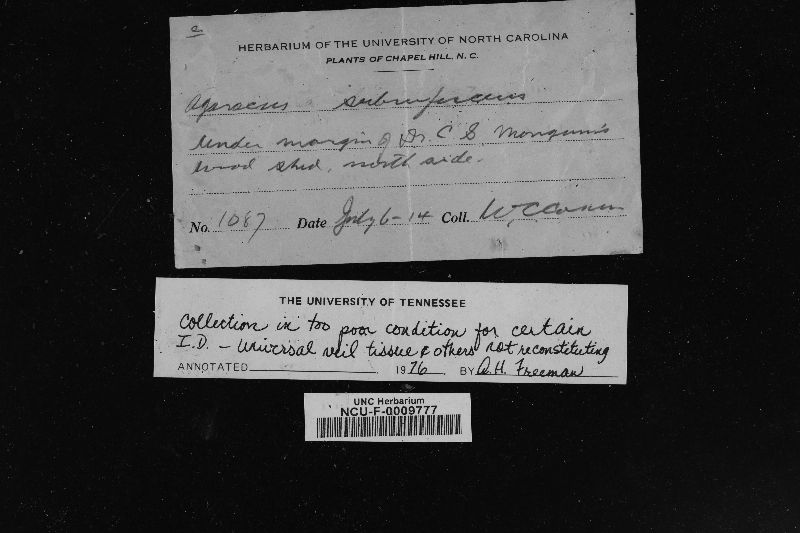 HERBARIUM OF THE UNIVERSITY OF NORTH CAROLINA
PLANTS OF CHAPEL HILL, N. C.
Agaracus subrufescens
Under margin of Dr. C S Mangum's
wood shed, north side.
No. 1087 Date July 6-14 Coll. W C Coker
THE UNIVERSITY OF TENNESSEE
Collection in too poor condition for certain
I.D. – universal veil tissue & others not reconstituting
ANNOTATED 1976 BY A.H. Freeman
UNC Herbarium
NCU-F-0009777